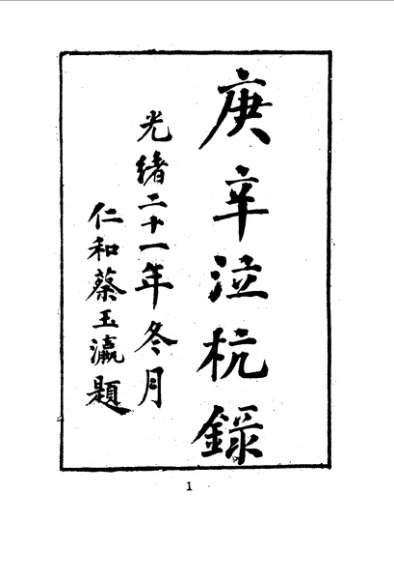 庚辛泣杭錄
光緒二十一年冬月
仁和蔡玉瀛題
1